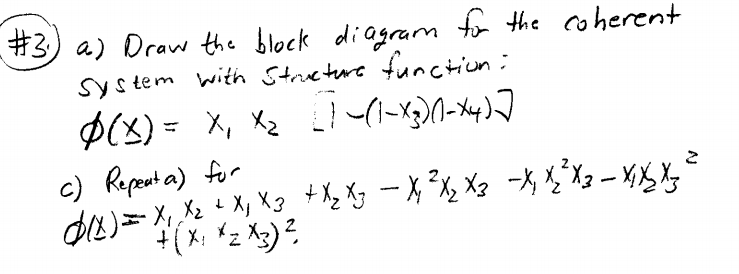 #3) a) Draw the block diagram for the coherent
system with structure function:
ϕ(x) = x₁ x₂ [1-(1-x₃)(1-x₄)]
c) Repeat a) for
ϕ(x) = x₁ x₂ + x₁ x₃ + x₂ x₃ - x₁² x₂ x₃ - x₁ x₂² x₃ - x₁ x₂ x₃²
+ (x₁ x₂ x₃)².